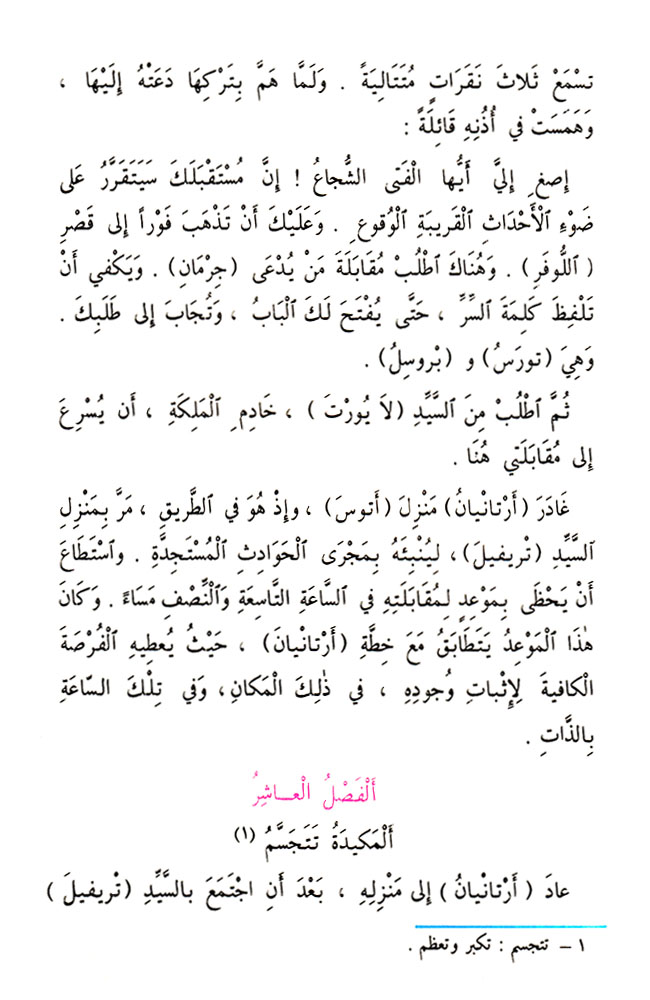 تسْمَعْ ثَلاثَ نَقَرَاتٍ مُتَتَالِيَةً . وَلَمَّا هَمَّ بِتَركِهَا دَعَتْهُ إِلَيْهَا ،
وَهَمَسَتْ في أُذْنِهِ قَائِلَةً :
إصغِ إِليَّ أَيُّها الْفَتى الشُّجاعُ ! إِنَّ مُسْتَقْبَلَكَ سَيَتَقَرَّرُ عَلى
ضَوْءِ ٱلْأَحْداثِ الْقَريبَةِ ٱلْوُقوعِ . وَعَلَيْكَ أَنْ تَذْهَبَ فَوْراً إِلى قَصْرِ
( اللُّوفَرِ ) . وَهُنَاكَ ٱطْلُبْ مُقَابَلَةَ مَنْ يُدْعَى (جِرْمَانِ) . وَيَكْفي أَنْ
تَلْفِظَ كَلِمَةَ ٱلسِّرِّ ، حَتَّى يُفْتَحَ لَكَ ٱلْبَابُ ، وَتُجَابَ إِلى طَلَبِكَ .
وَهِيَ (تورَسُ) و (بْروسِلُ) .
ثُمَّ ٱطْلُبْ مِنَ ٱلسَّيِّدِ (لاَ يُورْتَ ) ، خَادِمِ ٱلْمَلِكَةِ ، أَن يُسْرِعَ
إِلى مُقَابَلَتي هُنَا .
غَادَرَ (أَرْتَانْيَانُ) مَنْزِلَ (أَتوسَ) ، وإِذْ هُوَ في ٱلطَّريقِ ، مَرَّ بِمَنْزِلِ
ٱلسَّيِّدِ (تْريفيلَ)، لِيُنْبِئَهُ بِمَجْرَى ٱلْحَوادِثِ ٱلْمُسْتَجدَّةِ . واسْتَطَاعَ
أَنْ يَحْظَى بِمَوْعِدٍ لِمُقَابَلَتِهِ في ٱلسَّاعَةِ ٱلتَّاسِعَةِ وَٱلنِّصْفِ مَسَاءً . وَكَانَ
هٰذا ٱلْمَوْعِدُ يَتَطَابَقُ مَعَ خِطَّةِ (أَرْتَانْيانَ) ، حَيْثُ يُعطِيهِ ٱلْفُرْصَةَ
الْكافيةَ لِإِثْباتِ وُجودِهِ ، في ذٰلِكَ الْمَكانِ، وَفي تِلْكَ السّاعَةِ
بِالذَّاتِ .
أَلْفَصْلُ الْعـاشِرُ
أَلْمَكيدَةُ تَتَجَسَّمُ (١)
عادَ ( أَرْتانْيانُ ) إِلى مَنْزِلِهِ ، بَعْدَ أَنِ اجْتَمَعَ بالسَّيِّدِ (تْريفيلَ )
١ – تتجسم : تكبر وتعظم .